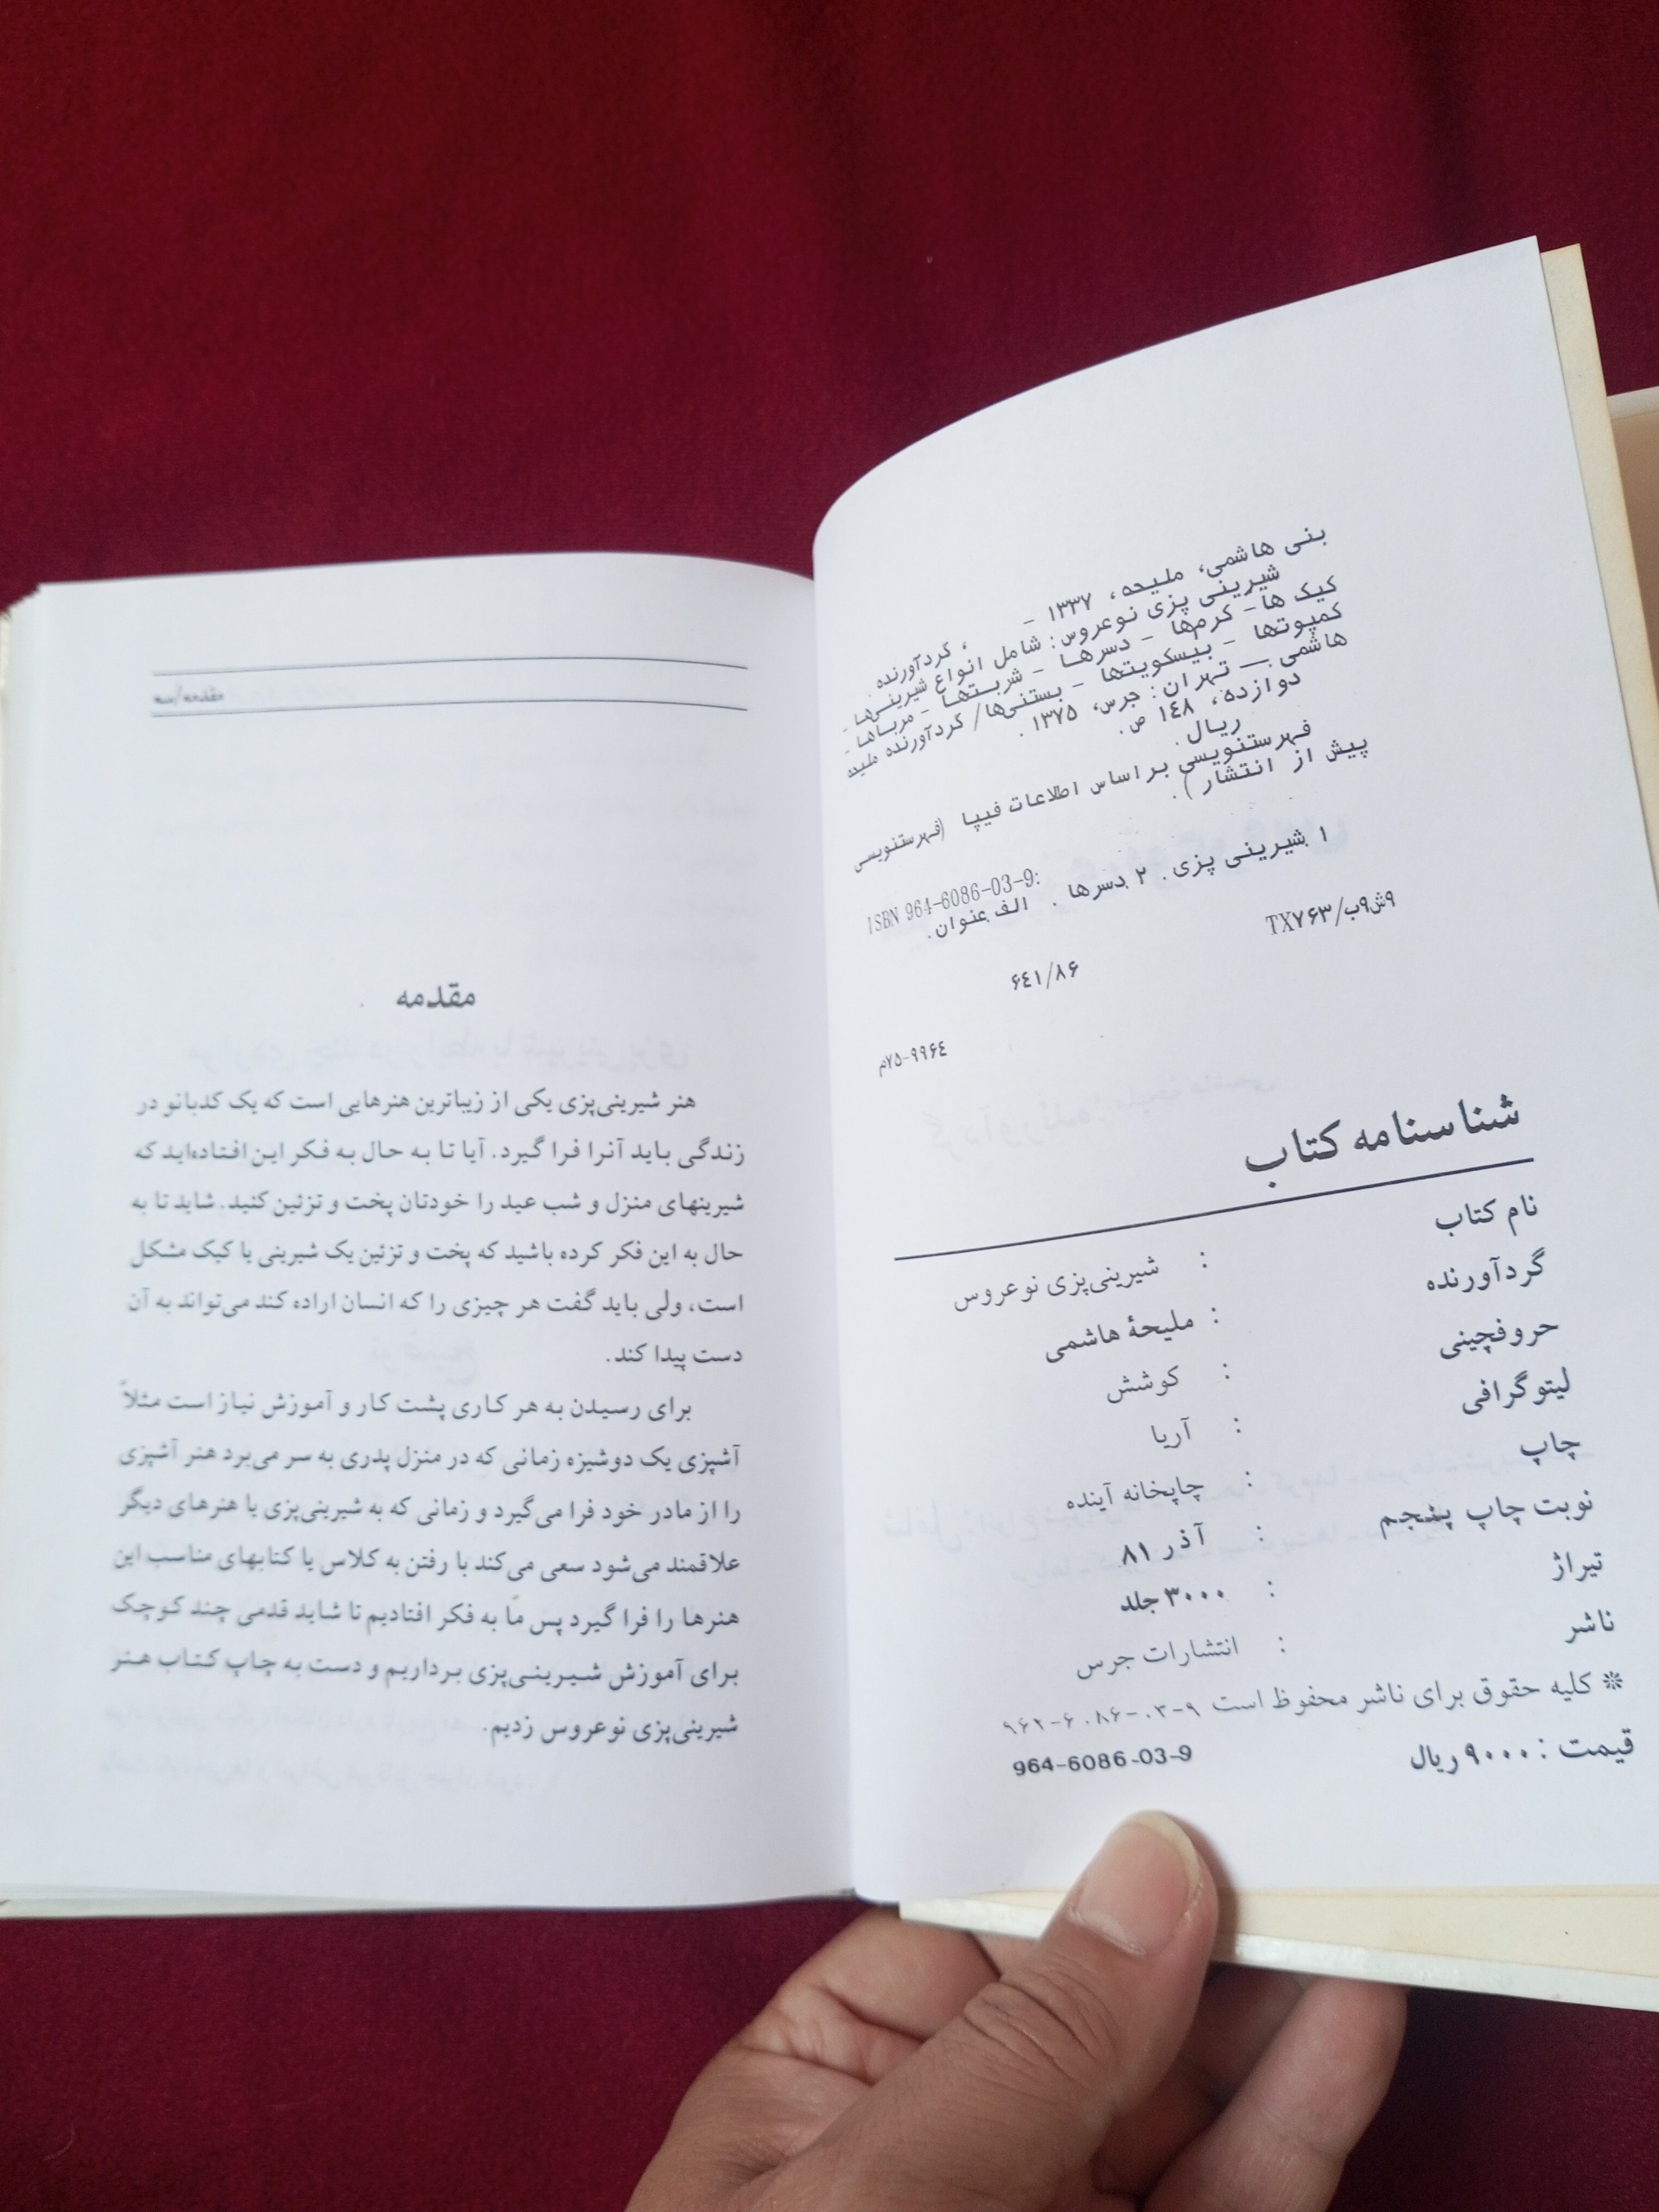 بنی هاشمی، ملیحه، ۱۳۳۷ -      ، گردآورنده.
شیرینی پزی نوعروس: شامل انواع شیرینی‌ها -
کیک ها - کرم‌ها - دسرها - شربتها - مرباها -
کمپوتها - بیسکویتها - بستنی‌ها/ گردآورنده ملیحه
هاشمی.ـــ تهران: جرس، ۱۳۷۵.
دوازده، ۱۴۸ ص.
ریال.
فهرستنویسی براساس اطلاعات فیپا (فهرستنویسی
پیش از انتشار).
ISBN 964-6086-03-9:
۱ شیرینی پزی. ۲ دسرها. الف عنوان.
۹ش۹ب/TX۷۶۳
۶۴۱/۸۶
۷۵-۹۹۶۴م
شناسنامه کتاب
نام کتاب : شیرینی‌پزی نوعروس
گردآورنده : ملیحۀ هاشمی
حروفچینی : کوشش
لیتوگرافی : آریا
چاپ : چاپخانه آینده
نوبت چاپ پنجم : آذر ۸۱
تیراژ : ۳۰۰۰ جلد
ناشر : انتشارات جرس
* کلیه حقوق برای ناشر محفوظ است ۹-۰۳-۶۰۸۶-۹۶۴
قیمت : ۹۰۰۰ ریال 964-6086-03-9
مقدمه/سه
مقدمه
هنر شیرینی‌پزی یکی از زیباترین هنرهایی است که یک کدبانو در
زندگی باید آنرا فرا گیرد. آیا تا به حال به فکر این افتاده‌اید که
شیرینهای منزل و شب عید را خودتان پخت و تزئین کنید. شاید تا به
حال به این فکر کرده باشید که پخت و تزئین یک شیرینی یا کیک مشکل
است، ولی باید گفت هر چیزی را که انسان اراده کند می‌تواند به آن
دست پیدا کند.
برای رسیدن به هر کاری پشت کار و آموزش نیاز است مثلاً
آشپزی یک دوشیزه زمانی که در منزل پدری به سر می‌برد هنر آشپزی
را از مادر خود فرا می‌گیرد و زمانی که به شیرینی‌پزی یا هنرهای دیگر
علاقمند می‌شود سعی می‌کند با رفتن به کلاس یا کتابهای مناسب این
هنرها را فرا گیرد پس ما به فکر افتادیم تا شاید قدمی چند کوچک
برای آموزش شیرینی‌پزی برداریم و دست به چاپ کتاب هنر
شیرینی‌پزی نوعروس زدیم.